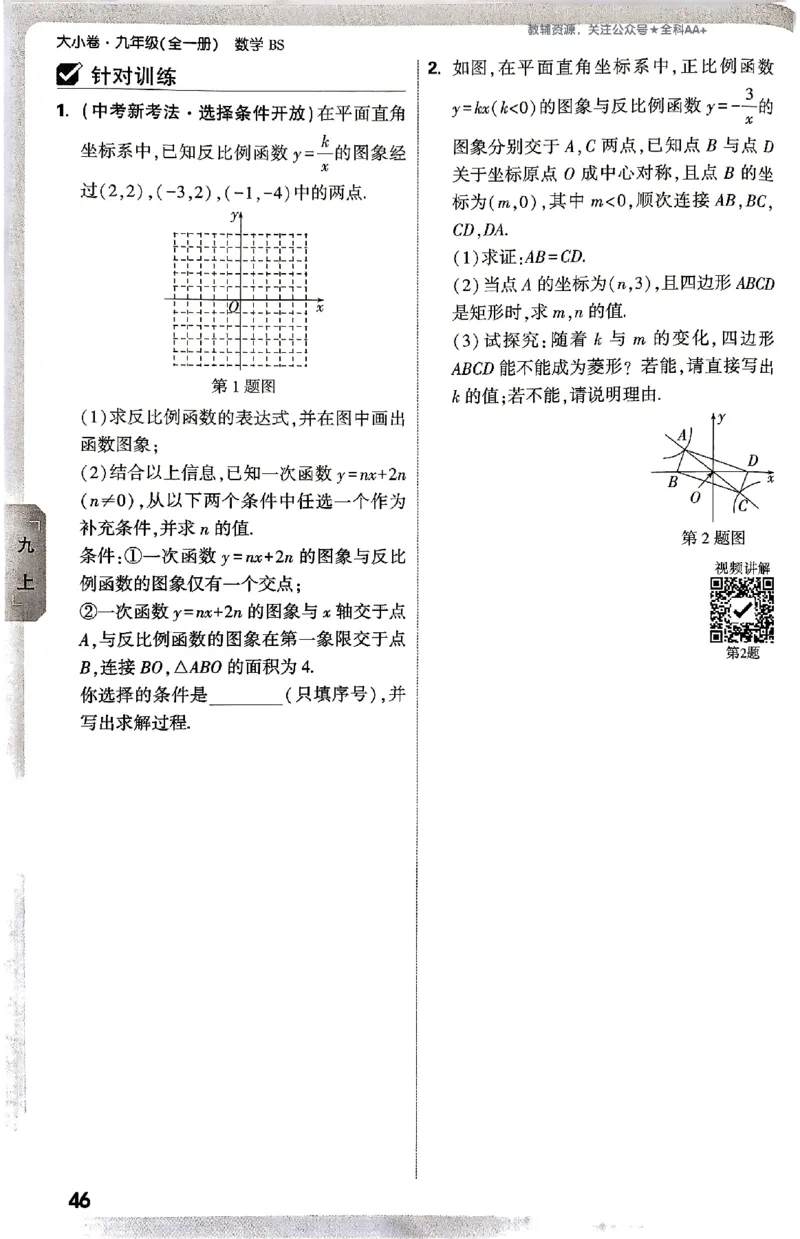 教辅资源，关注公众号★全科AA+
大小卷·九年级(全一册) 数学 BS
针对训练
1. (中考新考法·选择条件开放)在平面直角
坐标系中,已知反比例函数 y=k/x的图象经
过(2,2),(-3,2),(-1,-4)中的两点.
y
O
x
第1题图
(1)求反比例函数的表达式,并在图中画出
函数图象;
(2)结合以上信息,已知一次函数 y=nx+2n
(n≠0),从以下两个条件中任选一个作为
补充条件,并求 n 的值.
条件:①一次函数 y=nx+2n 的图象与反比
例函数的图象仅有一个交点;
②一次函数 y=nx+2n 的图象与 x 轴交于点
A,与反比例函数的图象在第一象限交于点
B,连接 BO,△ABO 的面积为 4.
你选择的条件是________(只填序号),并
写出求解过程.
2. 如图,在平面直角坐标系中,正比例函数
y=kx(k<0)的图象与反比例函数 y=-3/x的
图象分别交于 A,C 两点,已知点 B 与点 D
关于坐标原点 O 成中心对称,且点 B 的坐
标为(m,0),其中 m<0,顺次连接 AB,BC,
CD,DA.
(1)求证:AB=CD.
(2)当点 A 的坐标为(n,3),且四边形 ABCD
是矩形时,求 m,n 的值.
(3)试探究:随着 k 与 m 的变化,四边形
ABCD 能不能成为菱形? 若能,请直接写出
k 的值;若不能,请说明理由.
y
A
D
B
x
O
C
第2题图
视频讲解
第2题
九
上
46